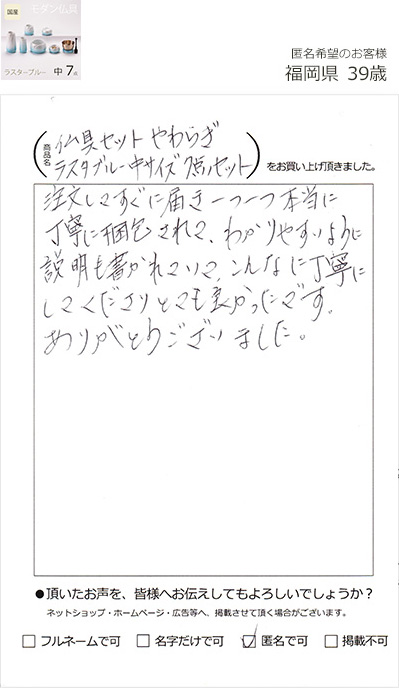 国産
モダン仏具
ラスターブルー 中 7点
匿名希望のお客様
福岡県 39歳
商品名
仏具セット やわらぎ
ラスタブルー中サイズ 7点セット
をお買い上げ頂きました。
注文してすぐに届き一つ一つ本当に
丁寧に梱包されて、わかりやすいように
説明も書かれていて、こんなに丁寧に
してくださりとても良かったです。
ありがとうございました。
●頂いたお声を、皆様へお伝えしてもよろしいでしょうか？
ネットショップ・ホームページ・広告等へ、掲載させて頂く場合がございます。
□ フルネームで可 □ 名字だけで可 ☑ 匿名で可 □ 掲載不可